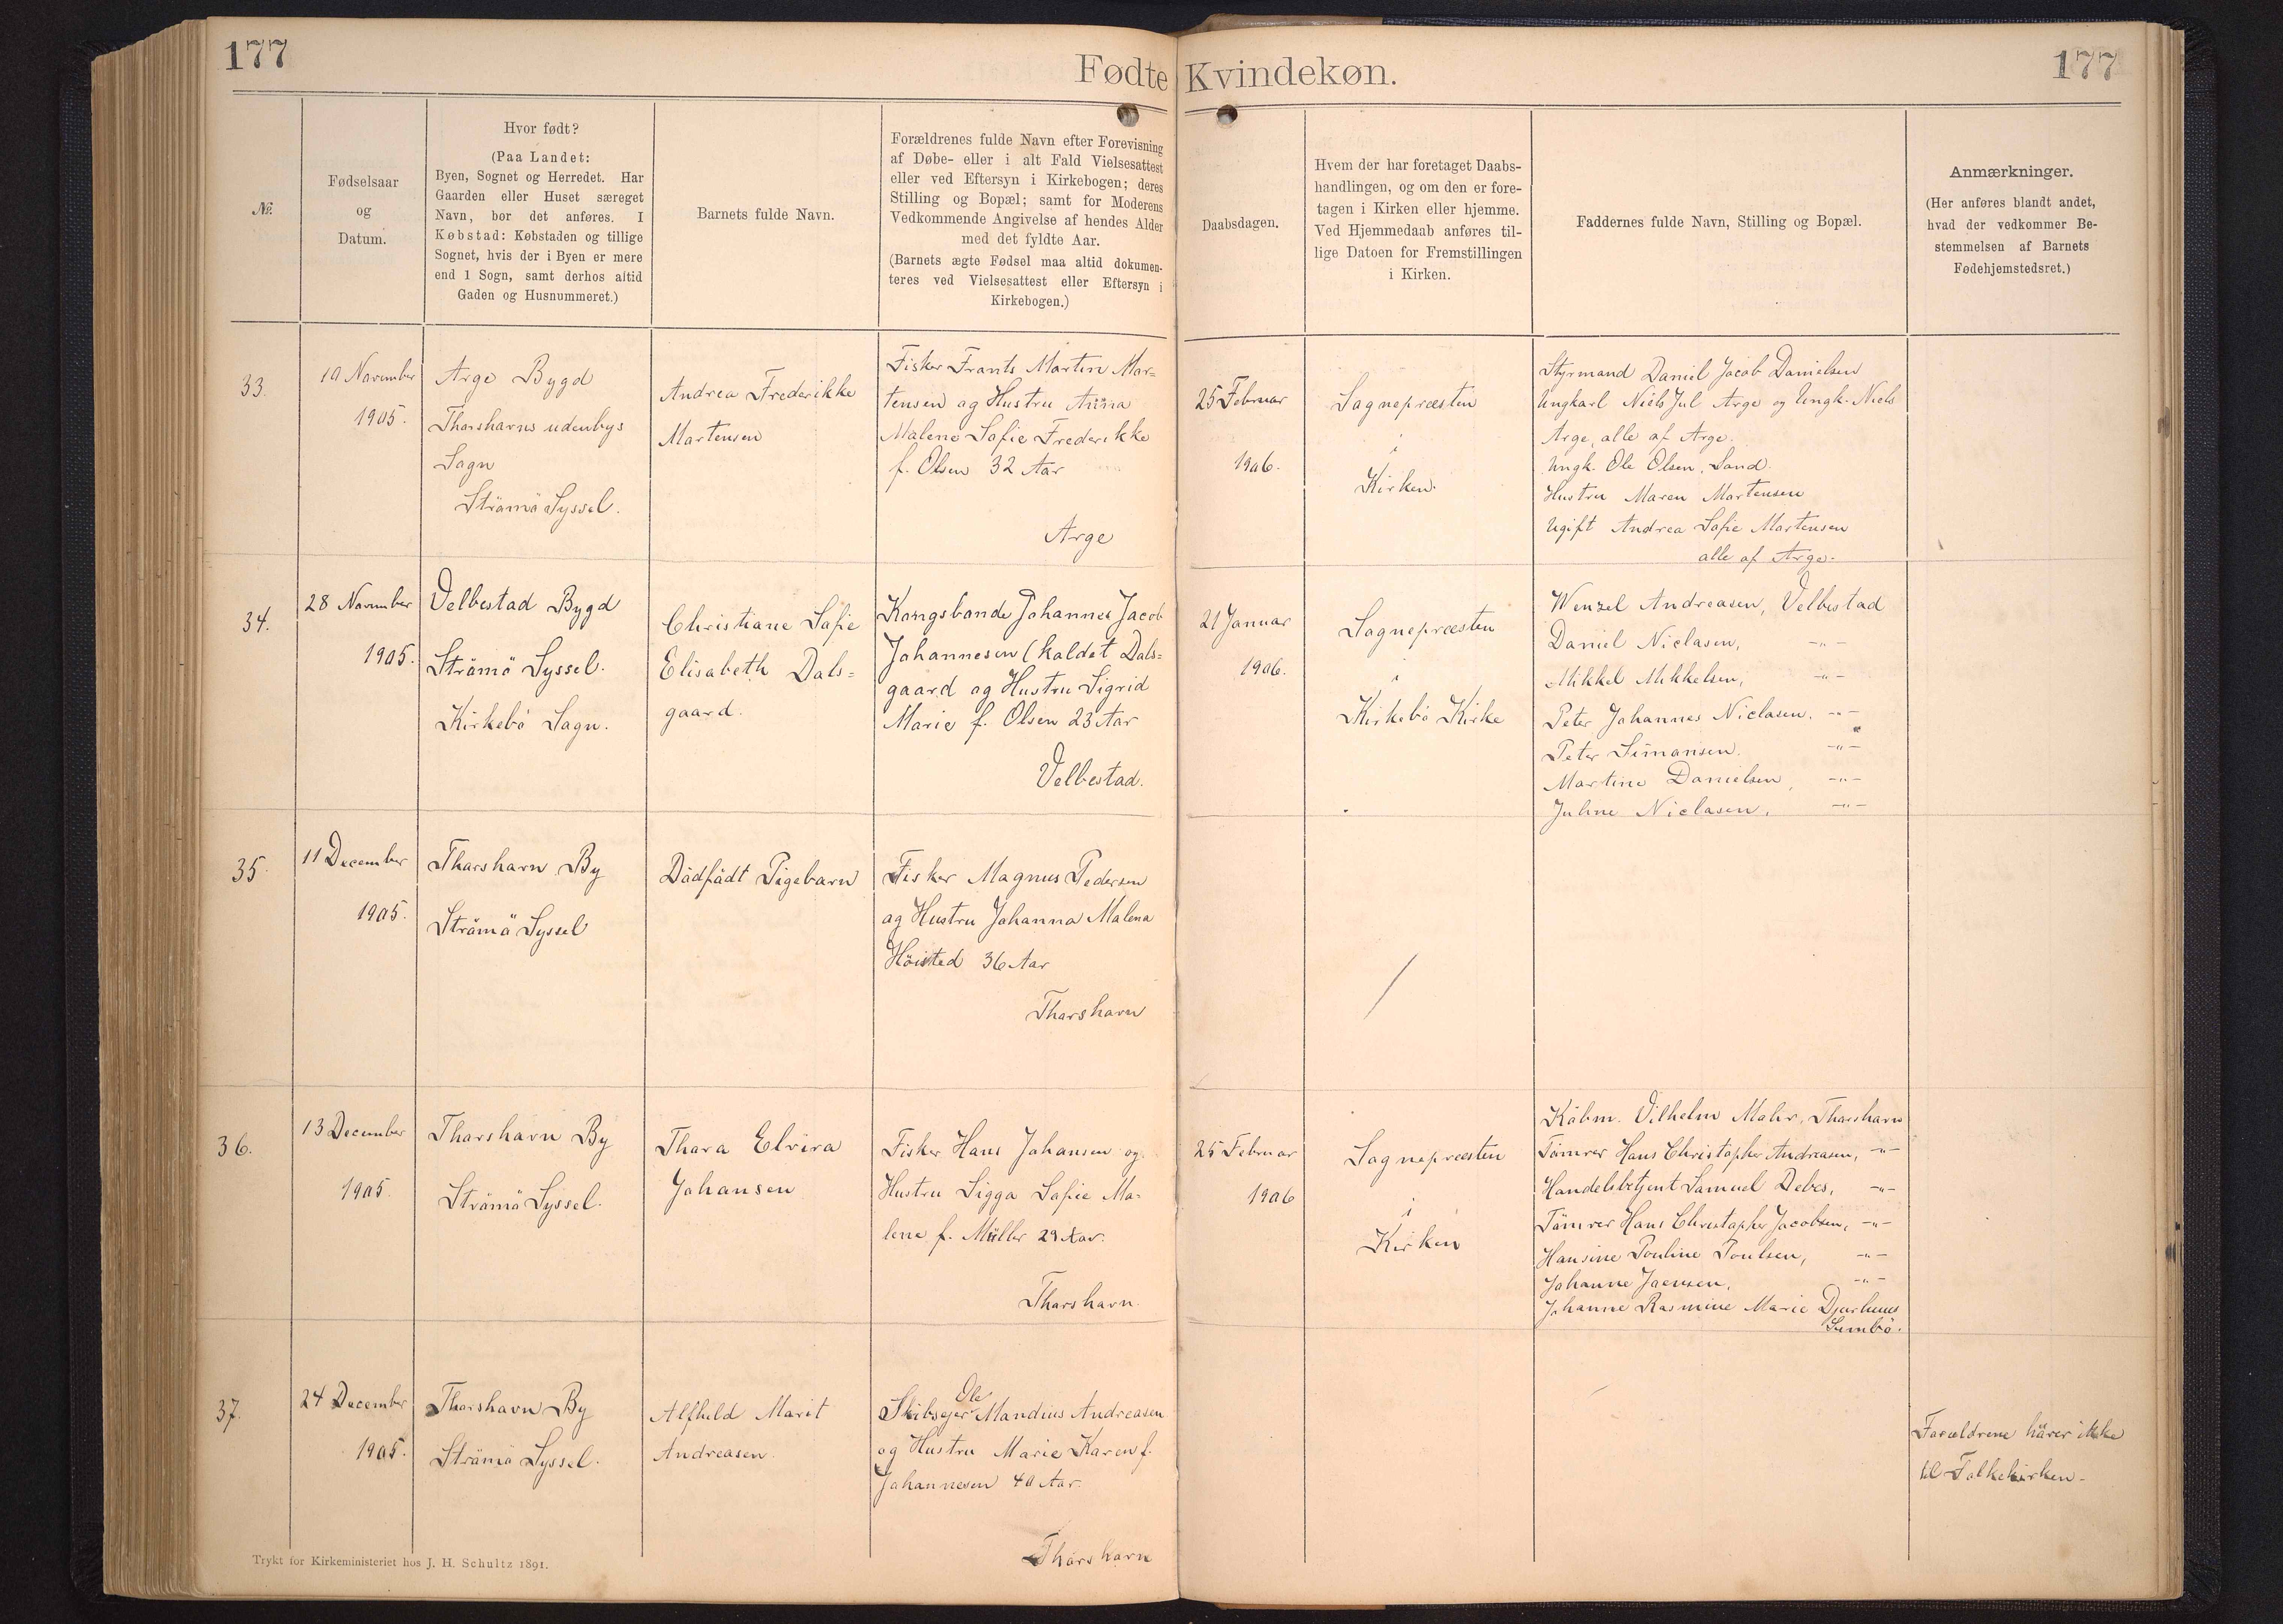 177
Fødte Kvindekøn.
177
№.
Fødselsaar
og
Datum.
Hvor født?
(Paa Landet:
Byen, Sognet og Herredet. Har
Gaarden eller Huset særeget
Navn, bør det anføres. I
Købstad: Købstaden og tillige
Sognet, hvis der i Byen er mere
end 1 Sogn, samt derhos altid
Gaden og Husnummeret.)
Barnets fulde Navn.
Forældrenes fulde Navn efter Forevisning
af Døbe- eller i alt Fald Vielsesattest
eller ved Eftersyn i Kirkebogen; deres
Stilling og Bopæl; samt for Moderens
Vedkommende Angivelse af hendes Alder
med det fyldte Aar.
(Barnets ægte Fødsel maa altid dokumen-
teres ved Vielsesattest eller Eftersyn i
Kirkebogen.)
Daabsdagen.
Hvem der har foretaget Daabs-
handlingen, og om den er fore-
tagen i Kirken eller hjemme.
Ved Hjemmedaab anføres til-
lige Datoen for Fremstillingen
i Kirken.
Faddernes fulde Navn, Stilling og Bopæl.
Anmærkninger.
(Her anføres blandt andet,
hvad der vedkommer Be-
stemmelsen af Barnets
Fødehjemstedsret.)
33.
10 November
1905.
Arge Bygd
Thorshavns udenbys
Sogn
Strömö Syssel.
Andrea Frederikke
Martensen
Fisker Frants Martin Mar=
tensen og Hustru Anna
Malene Sofie Frederikke
f. Olsen 32 Aar
Arge
25 Februar
1906.
Sognepræsten
i
Kirken.
Styrmand Daniel Jacob Danielsen
Ungkarl Niels Jul Arge og Ungk. Niels
Arge, alle af Arge.
Ungk. Ole Olsen, Sand.
Hustru Maren Martensen
Ugift Andrea Sofie Martensen
alle af Arge.
34.
28 November
1905.
Velbestad Bygd
Strömö Syssel.
Kirkebö Sogn.
Christiane Sofie
Elisabeth Dals=
gaard.
Kongsbonde Johannes Jacob
Johannesen (kaldet Dals=
gaard og Hustru Sigrid
Marie f. Olsen 23 Aar
Velbestad.
21 Januar
1906.
Sognepræsten
i
Kirkebö Kirke
Wenzel Andreasen, Velbestad
Daniel Niclasen, -"-
Mikkel Mikkelsen, -"-
Peter Johannes Niclasen. -"-
Peter Simonsen. -"-
Martine Danielsen, -"-
Juline Niclasen, -"-
35.
11 December
1905.
Thorshavn By
Strömö Syssel
Dödfödt Pigebarn
Fisker Magnus Pedersen
og Hustru Johanna Malena
Höisted 36 Aar
Thorshavn
/
36.
13 December
1905.
Thorshavn By
Strömö Syssel.
Thora Elvira
Johansen
Fisker Hans Johansen og
Hustru Sigga Sofie Ma=
lene f. Müller 29 Aar.
Thorshavn.
25 Februar
1906
Sognepræsten
i
Kirken
Köbm. Vilhelm Mohr, Thorshavn
Tömrer Hans Christopher Andreasen, -"-
Handelsbetjent Samuel Debes, -"-
Tömrer Hans Christopher Jacobsen, -"-
Hansine Pouline Poulsen, -"-
Johanne Joensen, -"-
Johanne Rasmine Marie Djurhuus
Sumbö.
37.
24 December
1905.
Thorshavn By
Strömö Syssel.
Alfhild Marit
Andreasen.
Ole
Skibsejer Mandius Andreasen
og Hustru Marie Karen f.
Johannesen 40 Aar.
Thorshavn
Forældrene hörer ikke
til Folkekirken.
Trykt for Kirkeministeriet hos J. H. Schultz 1891.